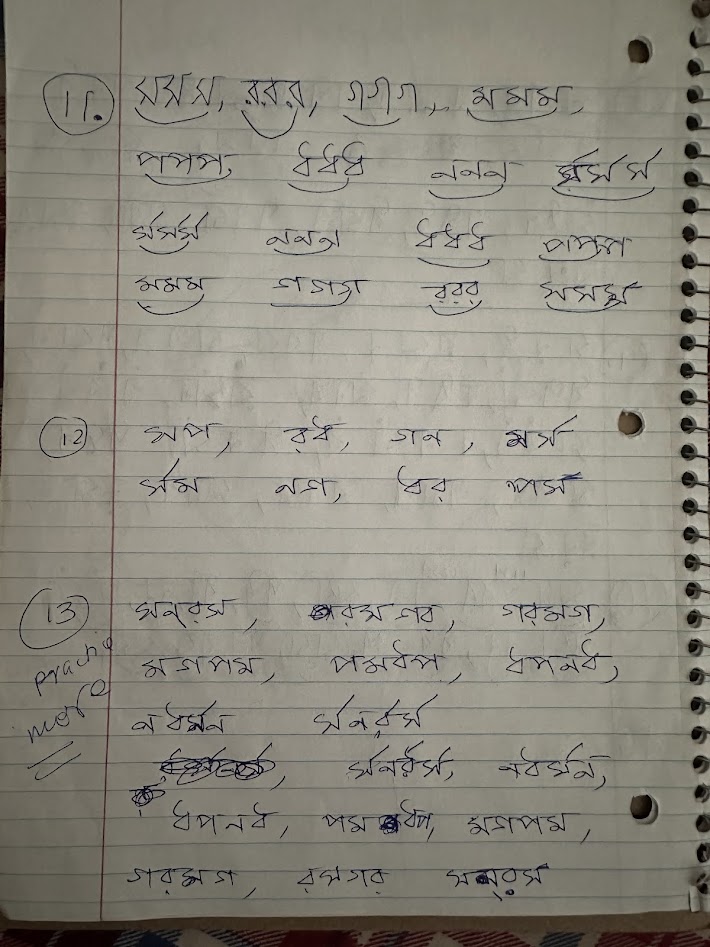 11. সসস, ররর, গগগ, মমম,
পপপ, ধধধ ননন র্সর্সর্স
র্সর্সর্স ননন ধধধ পপপ
মমম গগগ ররর সসস
12 সপ, রধ, গন, মর্স
র্সম নগ, ধর পস
13 সন্‌রস, রসগর, গরমগ,
practice more
মগপম, পমধপ, ধপনধ,
নধর্সন র্সনর্রর্স
র্সনর্রর্স, নধর্সন,
ধপনধ, পমধপ, মগপম,
গরমগ, রসগর সন্‌রস